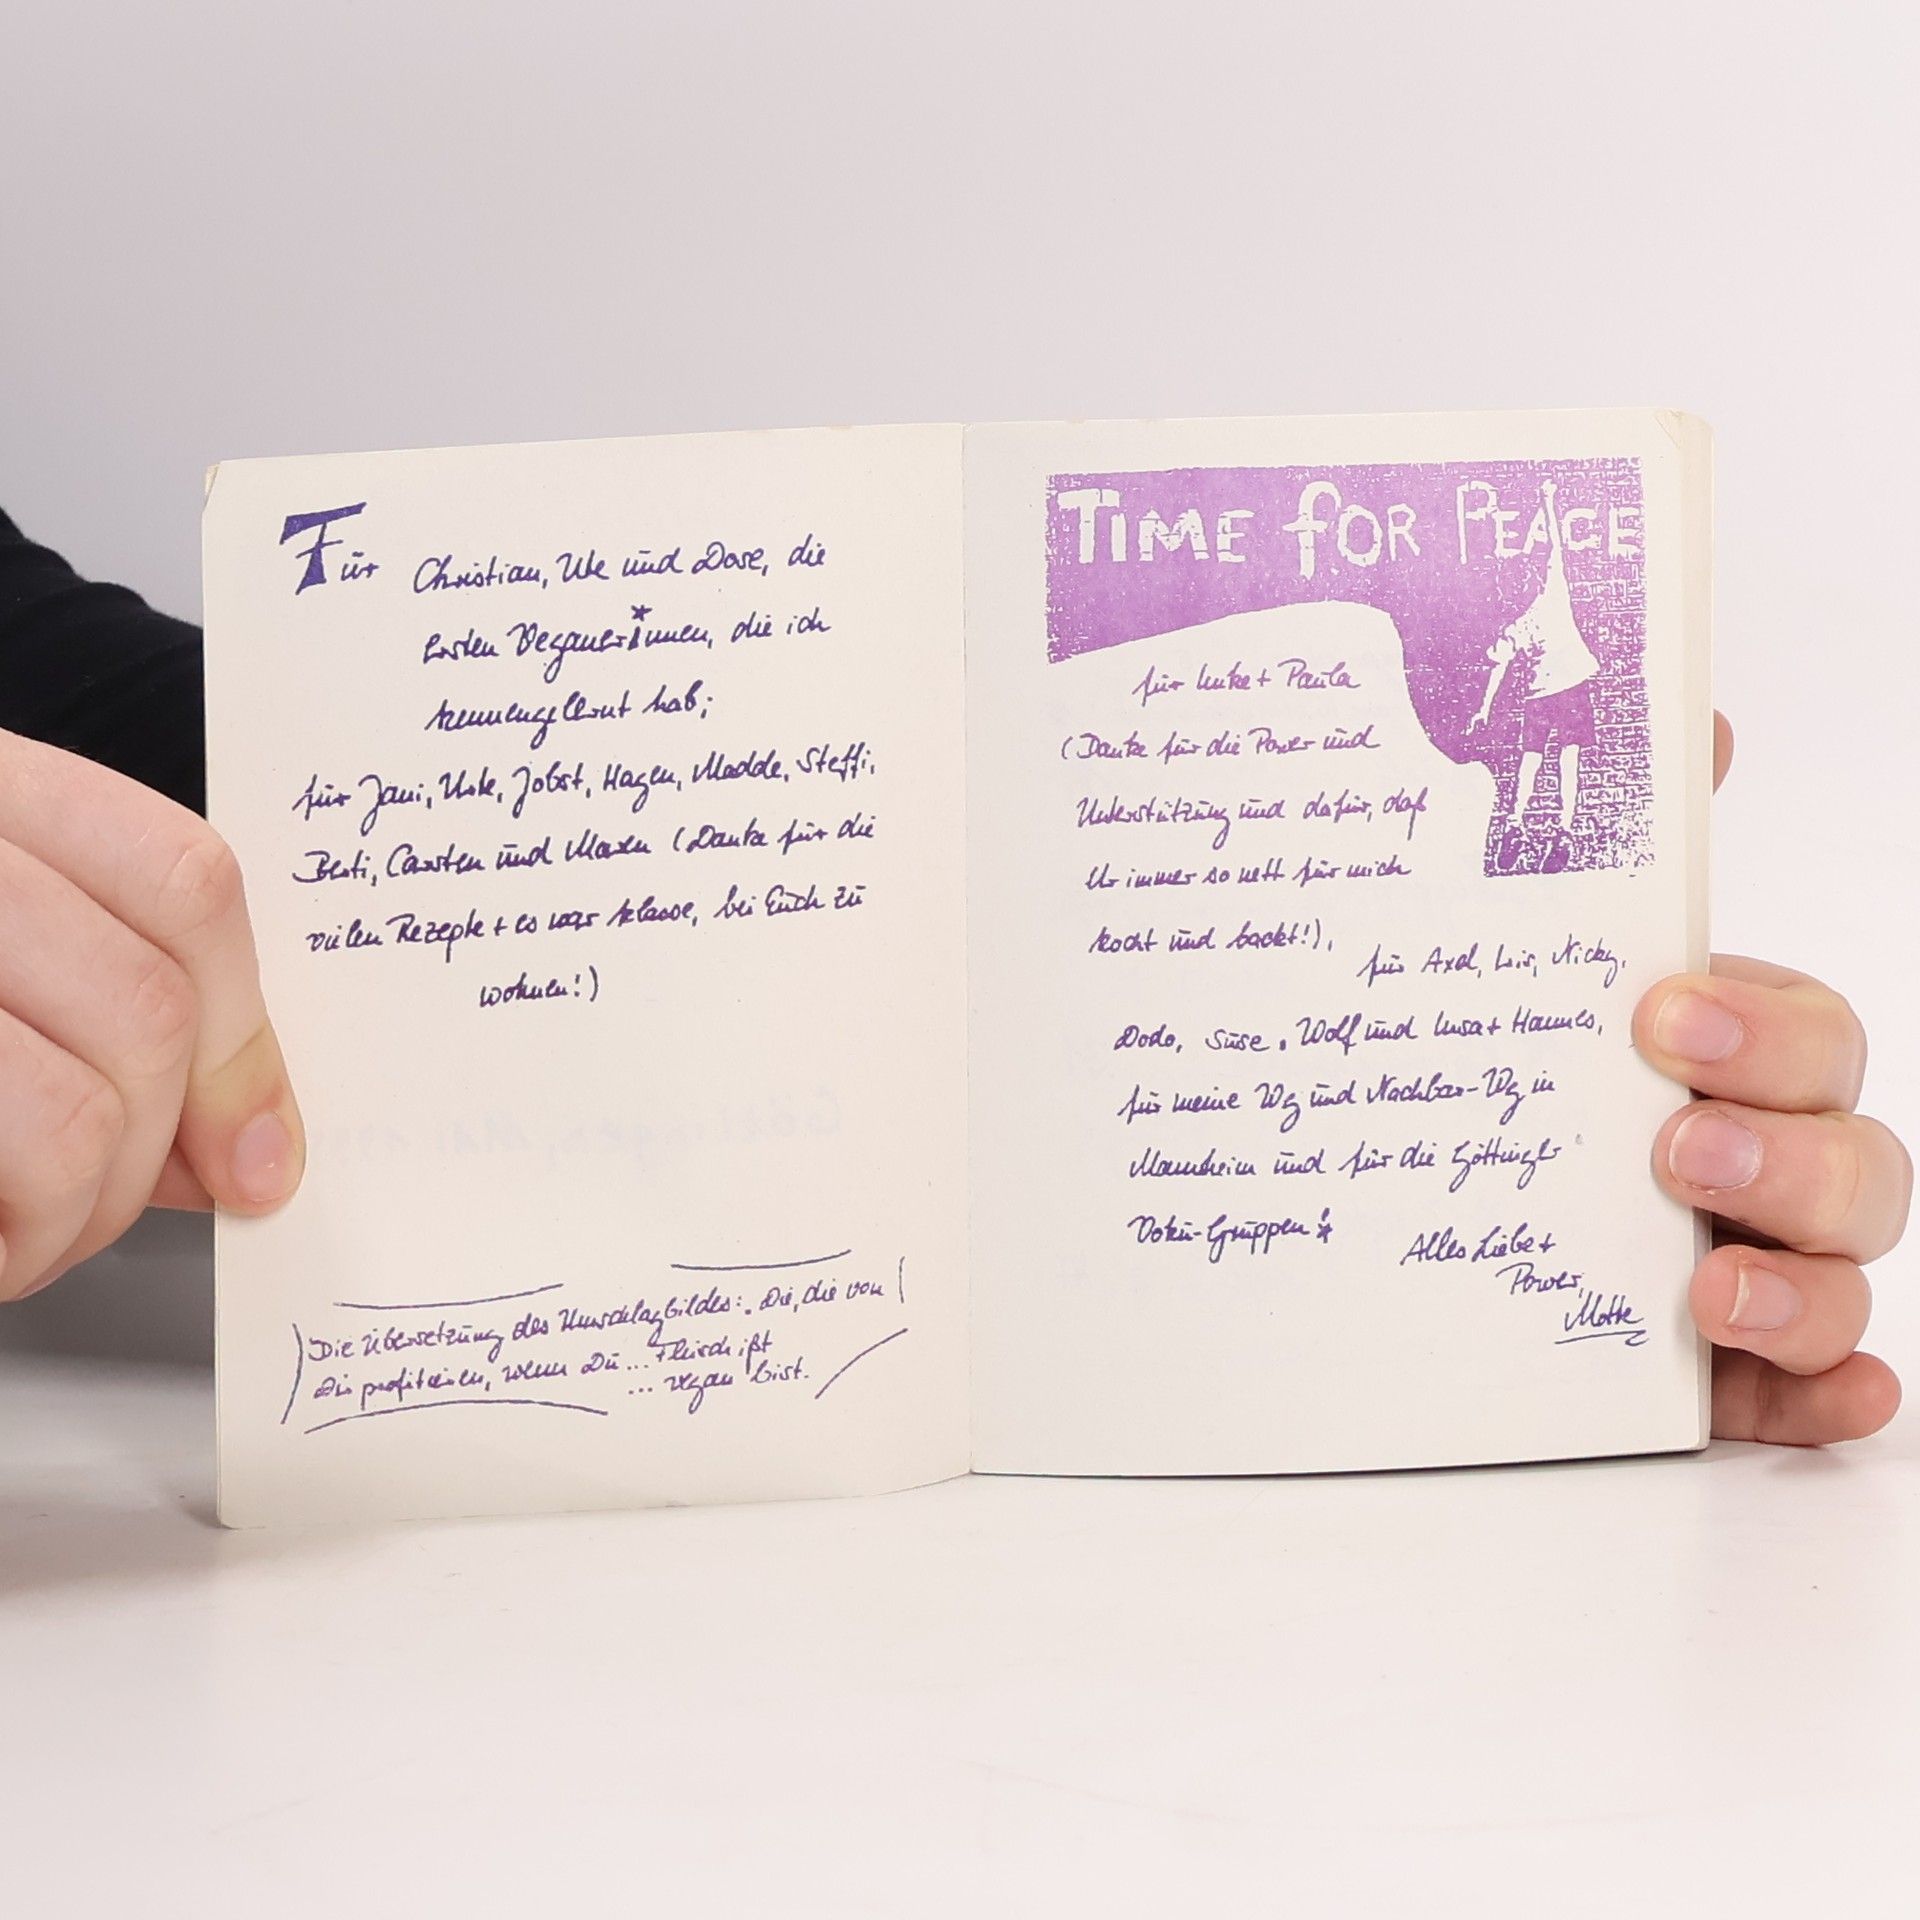 Für Christian, Ute und Dose, die
ersten Veganer*innen, die ich
kennengelernt hab;
für Jani, Urte, Jobst, Hagen, Madde, Steffi,
Berti, Carsten und Maren (Danke für die
vielen Rezepte + es war klasse, bei Euch zu
wohnen!)
Die Übersetzung des Umschlagbildes: „Die, die von
Dir profitieren, wenn Du ... Fleisch ißt
... vegan bist.
TIME FOR PEACE
für Imke + Paula
(Danke für die Power und
Unterstützung und dafür, daß
Ihr immer so nett für mich
kocht und backt!),
für Axel, Iris, Nicky,
Dodo, Suse, Wolf und Insa + Hannes,
für meine Wg und Nachbar-Wg in
Mannheim und für die Göttinger
Vokü-Gruppen!
Alles Liebe +
Power,
Motte